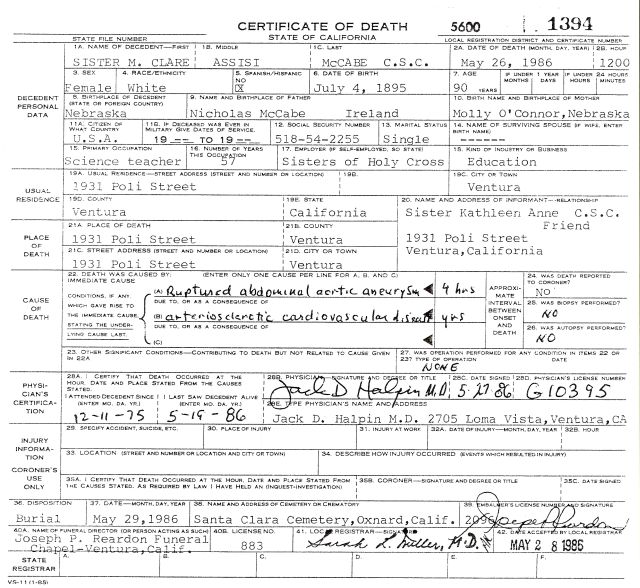 CERTIFICATE OF DEATH 5600 1394
STATE FILE NUMBER STATE OF CALIFORNIA LOCAL REGISTRATION DISTRICT AND CERTIFICATE NUMBER
1A. NAME OF DECEDENT—FIRST 1B. MIDDLE 1C. LAST 2A. DATE OF DEATH (MONTH, DAY, YEAR) 2B. HOUR
SISTER M. CLARE ASSISI McCABE C.S.C. May 26, 1986 1200
3. SEX 4. RACE/ETHNICITY 5. SPANISH/HISPANIC 6. DATE OF BIRTH 7. AGE IF UNDER 1 YEAR IF UNDER 24 HOURS
NO MONTHS DAYS HOURS MINUTES
Female White X July 4, 1895 90 YEARS
DECEDENT PERSONAL DATA
8. BIRTHPLACE OF DECEDENT (STATE OR FOREIGN COUNTRY) 9. NAME AND BIRTHPLACE OF FATHER 10. BIRTH NAME AND BIRTHPLACE OF MOTHER
Nebraska Nicholas McCabe Ireland Molly O'Connor, Nebraska
11A. CITIZEN OF WHAT COUNTRY 11B. IF DECEASED WAS EVER IN MILITARY GIVE DATES OF SERVICE. 12. SOCIAL SECURITY NUMBER 13. MARITAL STATUS 14. NAME OF SURVIVING SPOUSE (IF WIFE, ENTER BIRTH NAME)
U.S.A. 19 -- TO 19 -- 518-54-2255 Single ------
15. PRIMARY OCCUPATION 16. NUMBER OF YEARS THIS OCCUPATION 17. EMPLOYER (IF SELF-EMPLOYED, SO STATE) 18. KIND OF INDUSTRY OR BUSINESS
Science teacher 57 Sisters of Holy Cross Education
USUAL RESIDENCE
19A. USUAL RESIDENCE—STREET ADDRESS (STREET AND NUMBER OR LOCATION) 19B. 19C. CITY OR TOWN
1931 Poli Street Ventura
19D. COUNTY 19E. STATE 20. NAME AND ADDRESS OF INFORMANT—RELATIONSHIP
Ventura California Sister Kathleen Anne C.S.C.
Friend
PLACE OF DEATH
21A. PLACE OF DEATH 21B. COUNTY
1931 Poli Street Ventura 1931 Poli Street
21C. STREET ADDRESS (STREET AND NUMBER OR LOCATION) 21D. CITY OR TOWN
1931 Poli Street Ventura Ventura,California
CAUSE OF DEATH
22. DEATH WAS CAUSED BY: (ENTER ONLY ONE CAUSE PER LINE FOR A, B, AND C) 24. WAS DEATH REPORTED TO CORONER?
IMMEDIATE CAUSE
(A) Ruptured abdominal aortic aneurysm 4 hrs NO
CONDITIONS, IF ANY, WHICH GAVE RISE TO THE IMMEDIATE CAUSE STATING THE UNDERLYING CAUSE LAST.
DUE TO, OR AS A CONSEQUENCE OF
APPROXIMATE INTERVAL BETWEEN ONSET AND DEATH
25. WAS BIOPSY PERFORMED?
(B) arteriosclerotic cardiovascular disease yrs NO
DUE TO, OR AS A CONSEQUENCE OF 26. WAS AUTOPSY PERFORMED?
(C) NO
23. OTHER SIGNIFICANT CONDITIONS—CONTRIBUTING TO DEATH BUT NOT RELATED TO CAUSE GIVEN IN 22A 27. WAS OPERATION PERFORMED FOR ANY CONDITION IN ITEMS 22 OR 23? TYPE OF OPERATION
NONE
PHYSICIAN'S CERTIFICATION
28A. I CERTIFY THAT DEATH OCCURRED AT THE HOUR, DATE AND PLACE STATED FROM THE CAUSES STATED. 28B. PHYSICIAN—SIGNATURE AND DEGREE OR TITLE 28C. DATE SIGNED 28D. PHYSICIAN'S LICENSE NUMBER
Jack D Halpin M.D. 5-27-86 G10395
I ATTENDED DECEDENT SINCE (ENTER MO. DA. YR.) I LAST SAW DECEDENT ALIVE (ENTER MO. DA. YR.) 28E. TYPE PHYSICIAN'S NAME AND ADDRESS
12-11-75 5-19-86 Jack D. Halpin M.D. 2705 Loma Vista, Ventura, CA
INJURY INFORMATION CORONER'S USE ONLY
29. SPECIFY ACCIDENT, SUICIDE, ETC. 30. PLACE OF INJURY 31. INJURY AT WORK 32A. DATE OF INJURY—MONTH, DAY, YEAR 32B. HOUR
33. LOCATION (STREET AND NUMBER OR LOCATION AND CITY OR TOWN) 34. DESCRIBE HOW INJURY OCCURRED (EVENTS WHICH RESULTED IN INJURY)
35A. I CERTIFY THAT DEATH OCCURRED AT THE HOUR, DATE AND PLACE STATED FROM THE CAUSES STATED. AS REQUIRED BY LAW I HAVE HELD AN (INQUEST-INVESTIGATION) 35B. CORONER—SIGNATURE AND DEGREE OR TITLE 35C. DATE SIGNED
36. DISPOSITION 37. DATE—MONTH, DAY, YEAR 38. NAME AND ADDRESS OF CEMETERY OR CREMATORY 39. EMBALMER'S LICENSE NUMBER AND SIGNATURE
Burial May 29,1986 Santa Clara Cemetery,Oxnard,Calif.
40A. NAME OF FUNERAL DIRECTOR (OR PERSON ACTING AS SUCH) 40B. LICENSE NO. 41. LOCAL REGISTRAR—SIGNATURE 42. DATE ACCEPTED BY LOCAL REGISTRAR
Joseph P. Reardon Funeral Chapel-Ventura,Calif. 883 Sarah L. Miller, M.D. MAY 28 1986
STATE REGISTRAR A. B. C. D. E. F.
VS-11 (1-85)